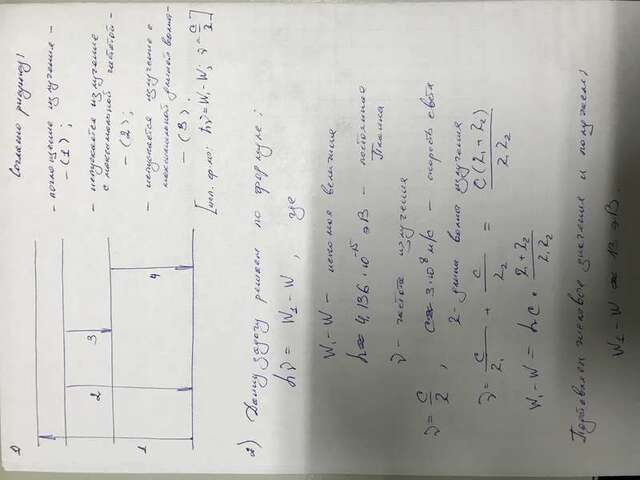 1)
1
2
3
4
Согласно рисунку:
- поглощение излучение -
- (1);
- испускается излучение
с максимальной частотой -
- (2);
- испускается излучение с
максимальной длиной волны -
- (3);
hν = W₁ - W; ν = c/λ]
2) Данную задачу решаем по формуле:
hν = W₁ - W, где
W₁ - W - искомая величина
h ≈ 4,136 · 10⁻¹⁵ эВ - постоянная
Планка
ν - частота излучения
ν = c/λ, c ≈ 3·10⁸ м/с - скорость света
λ - длина волны излучения
ν = c/λ₁ + c/λ₂ = c(λ₁ + λ₂)/λ₁λ₂
W₁ - W = hc · λ₁ + λ₂/λ₁λ₂
числовое значения и получаем,